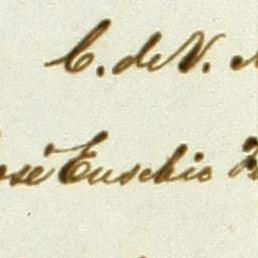 C. de N.
José Eusebio